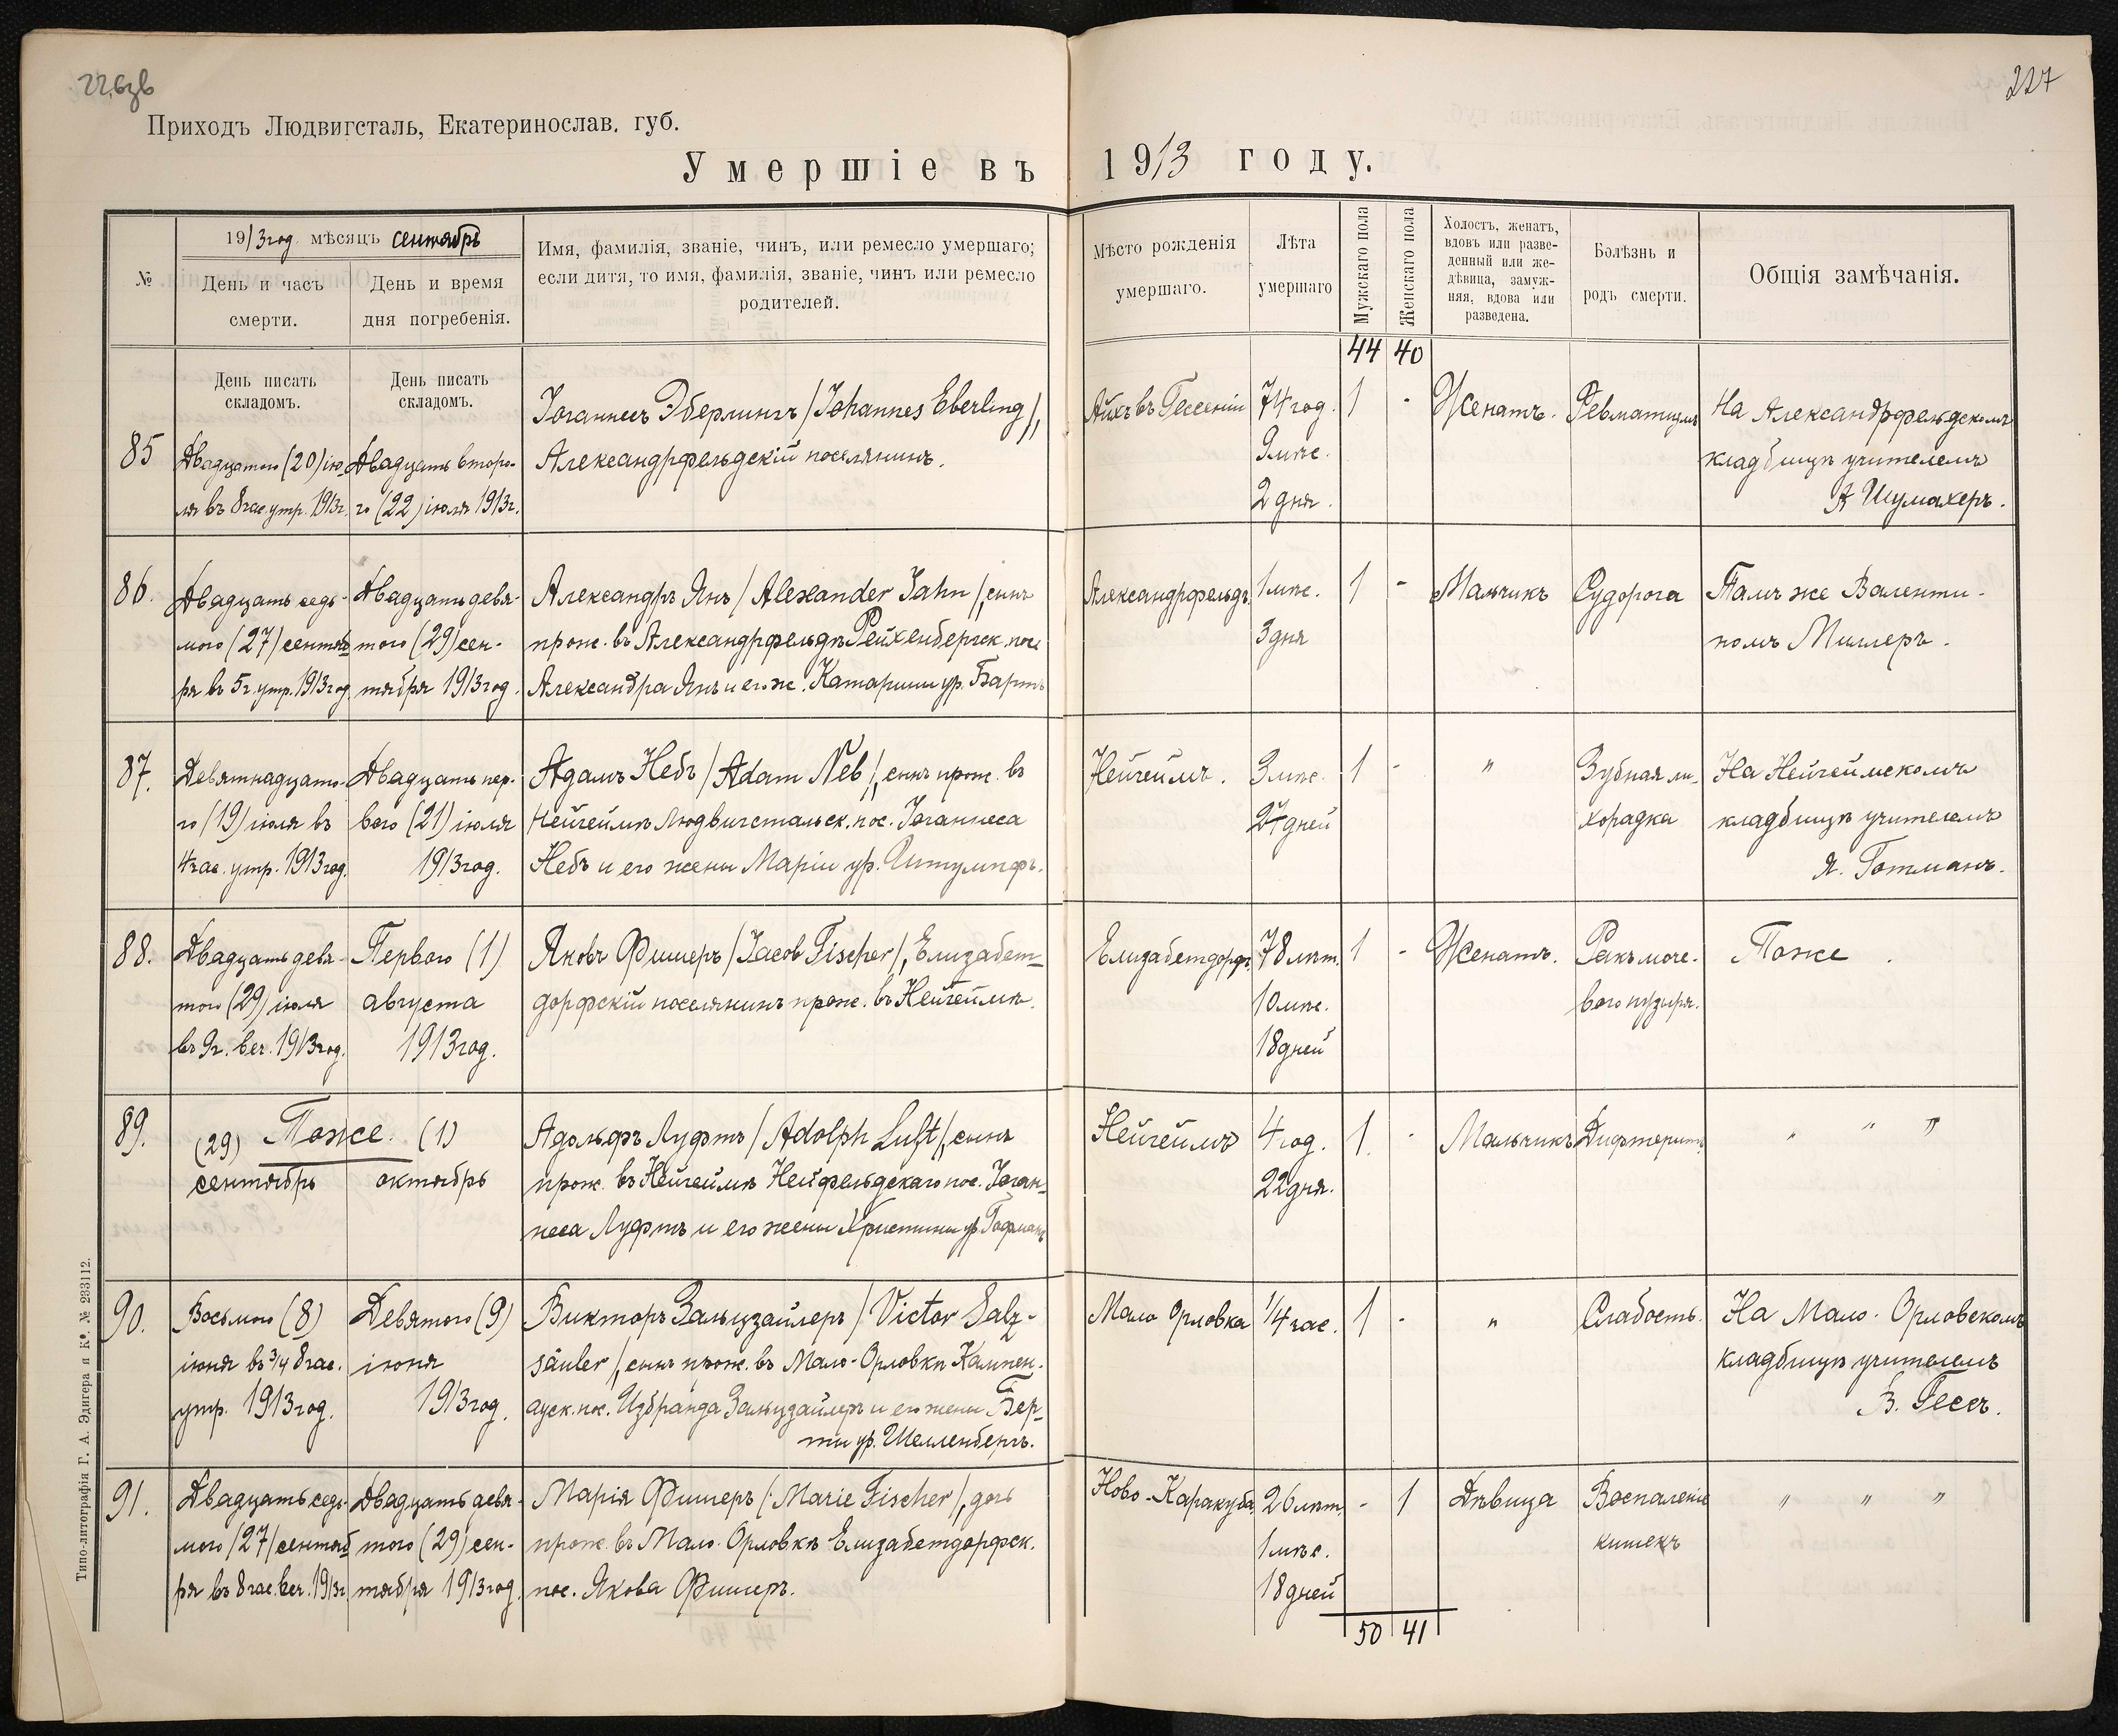 22, бзв
227
Приходъ Людвигсталь, Екатеринослав. губ.
Умершіе въ 1913 году.
№
1913 год. мѣсяцъ сентябрь
День и часъ
смерти.
День и время
дня погребенія.
Имя, фамилія, званіе, чинъ, или ремесло умершаго;
если дитя, то имя, фамилія, званіе, чинъ или ремесло
родителей.
Мѣсто рожденія
умершаго.
Лѣта
умершаго
Мужскаго пола
Женскаго пола
Холостъ, женатъ,
вдовъ или разве-
денный или же-
дѣвица, замуж-
няя, вдова или
разведена.
Болѣзнь и
родъ смерти.
Общія замѣчанія.
44 40
День писать
складомъ.
День писать
складомъ.
85
Двадцатого (20) ію-
ля въ 8 час. утр. 1913г.
Двадцать второ-
го (22) іюля 1913г.
Іоганнесъ Эберлингъ /Johannes Eberling/,
Александрфельдскій поселянинъ.
Айхъ въ Гессеніи
74 год.
9 мѣс.
2 дня.
1
-
Женатъ.
Ревматизмъ
На Александрфельдскомъ
кладбищѣ учителемъ
А Шумахеръ.
86.
Двадцать седь-
мого (27) сентяб
ря въ 5 ч. утр. 1913 год
Двадцать девя-
того (29) сен-
тября 1913 год.
Александръ Янъ /Alexander Jahn/, сынъ
прож. въ Александрфельдѣ Рейхенбергск. пос.
Александра Янъ и его ж. Катарины ур. Бартъ
Александрфельдъ.
1 мѣс.
3 дня
1
-
Мальчикъ
Судорога
Тамъ же Валенти-
номъ Миллеръ.
87.
Девятнадцато-
го (19) іюля въ
4 час. утр. 1913 год.
Двадцать пер-
вого (21) іюля
1913 год.
Адамъ Небъ /Adam Neb/, сынъ прож. въ
Нейгеймѣ Людвигстальск. пос. Іоганнеса
Небъ и его жены Маріи ур. Штумпфъ.
Нейгеймъ.
3 мѣс.
27 дней
1
-
"
Зубная ли-
хорадка
На Нейгеймскомъ
кладбищѣ учителемъ
Я. Готманъ.
88.
Двадцать девя-
того (29) іюля
въ 9 ч. веч. 1913 год.
Первого (1)
августа
1913 год.
Яковъ Фишеръ /Jacob Fischer/, Елизабет-
дорфскій поселянинъ прож. въ Нейгеймѣ.
Елизабетдорфъ
78 лѣт.
10 мѣс.
18 дней
1
-
Женатъ.
Ракъ моче-
вого пузыря.
Тоже.
89.
(29) Тоже. (1)
сентябрь октябрь
Адольфъ Луфтъ /Adolph Luft/, сынъ
прож. въ Нейгеймѣ Нейфельдскаго пос. Іоган-
неса Луфтъ и его жены Христины ур. Гофманъ
Нейгеймъ
4 год.
22 дня.
1.
-
Мальчикъ
Дифтеритъ
" " "
90.
Восьмого (8)
іюня въ 3/4 8 час.
утр. 1913 год.
Девятого (9)
іюня
1913 год.
Викторъ Зальцзайлеръ /Victor Salz-
säuler/, сынъ прож. въ Мало-Орловкѣ Кампен-
ауск. пос. Избранда Зальцзайлеръ и его жены Бер-
ты ур. Шелленбергъ.
Мало Орловка
1/4 час.
1
-
"
Слабость.
На Мало-Орловскомъ
кладбищѣ учителемъ
В. Гессъ.
91.
Двадцать седь-
мого (27) сентяб
ря въ 8 час. веч. 1913г
Двадцать девя-
того (29) сен-
тября 1913 год.
Марія Фишеръ /Marie Fischer/, дочь
прож. въ Мало-Орловкѣ Елизабетдорфск.
пос. Якова Фишеръ.
Ново-Каракуба
26 лѣт.
1 мѣс.
18 дней
-
1
Дѣвица
Воспаленіе
кишекъ
" " "
50 41
Типо-литографія Г. А. Эдигера и Кº. № 233112.